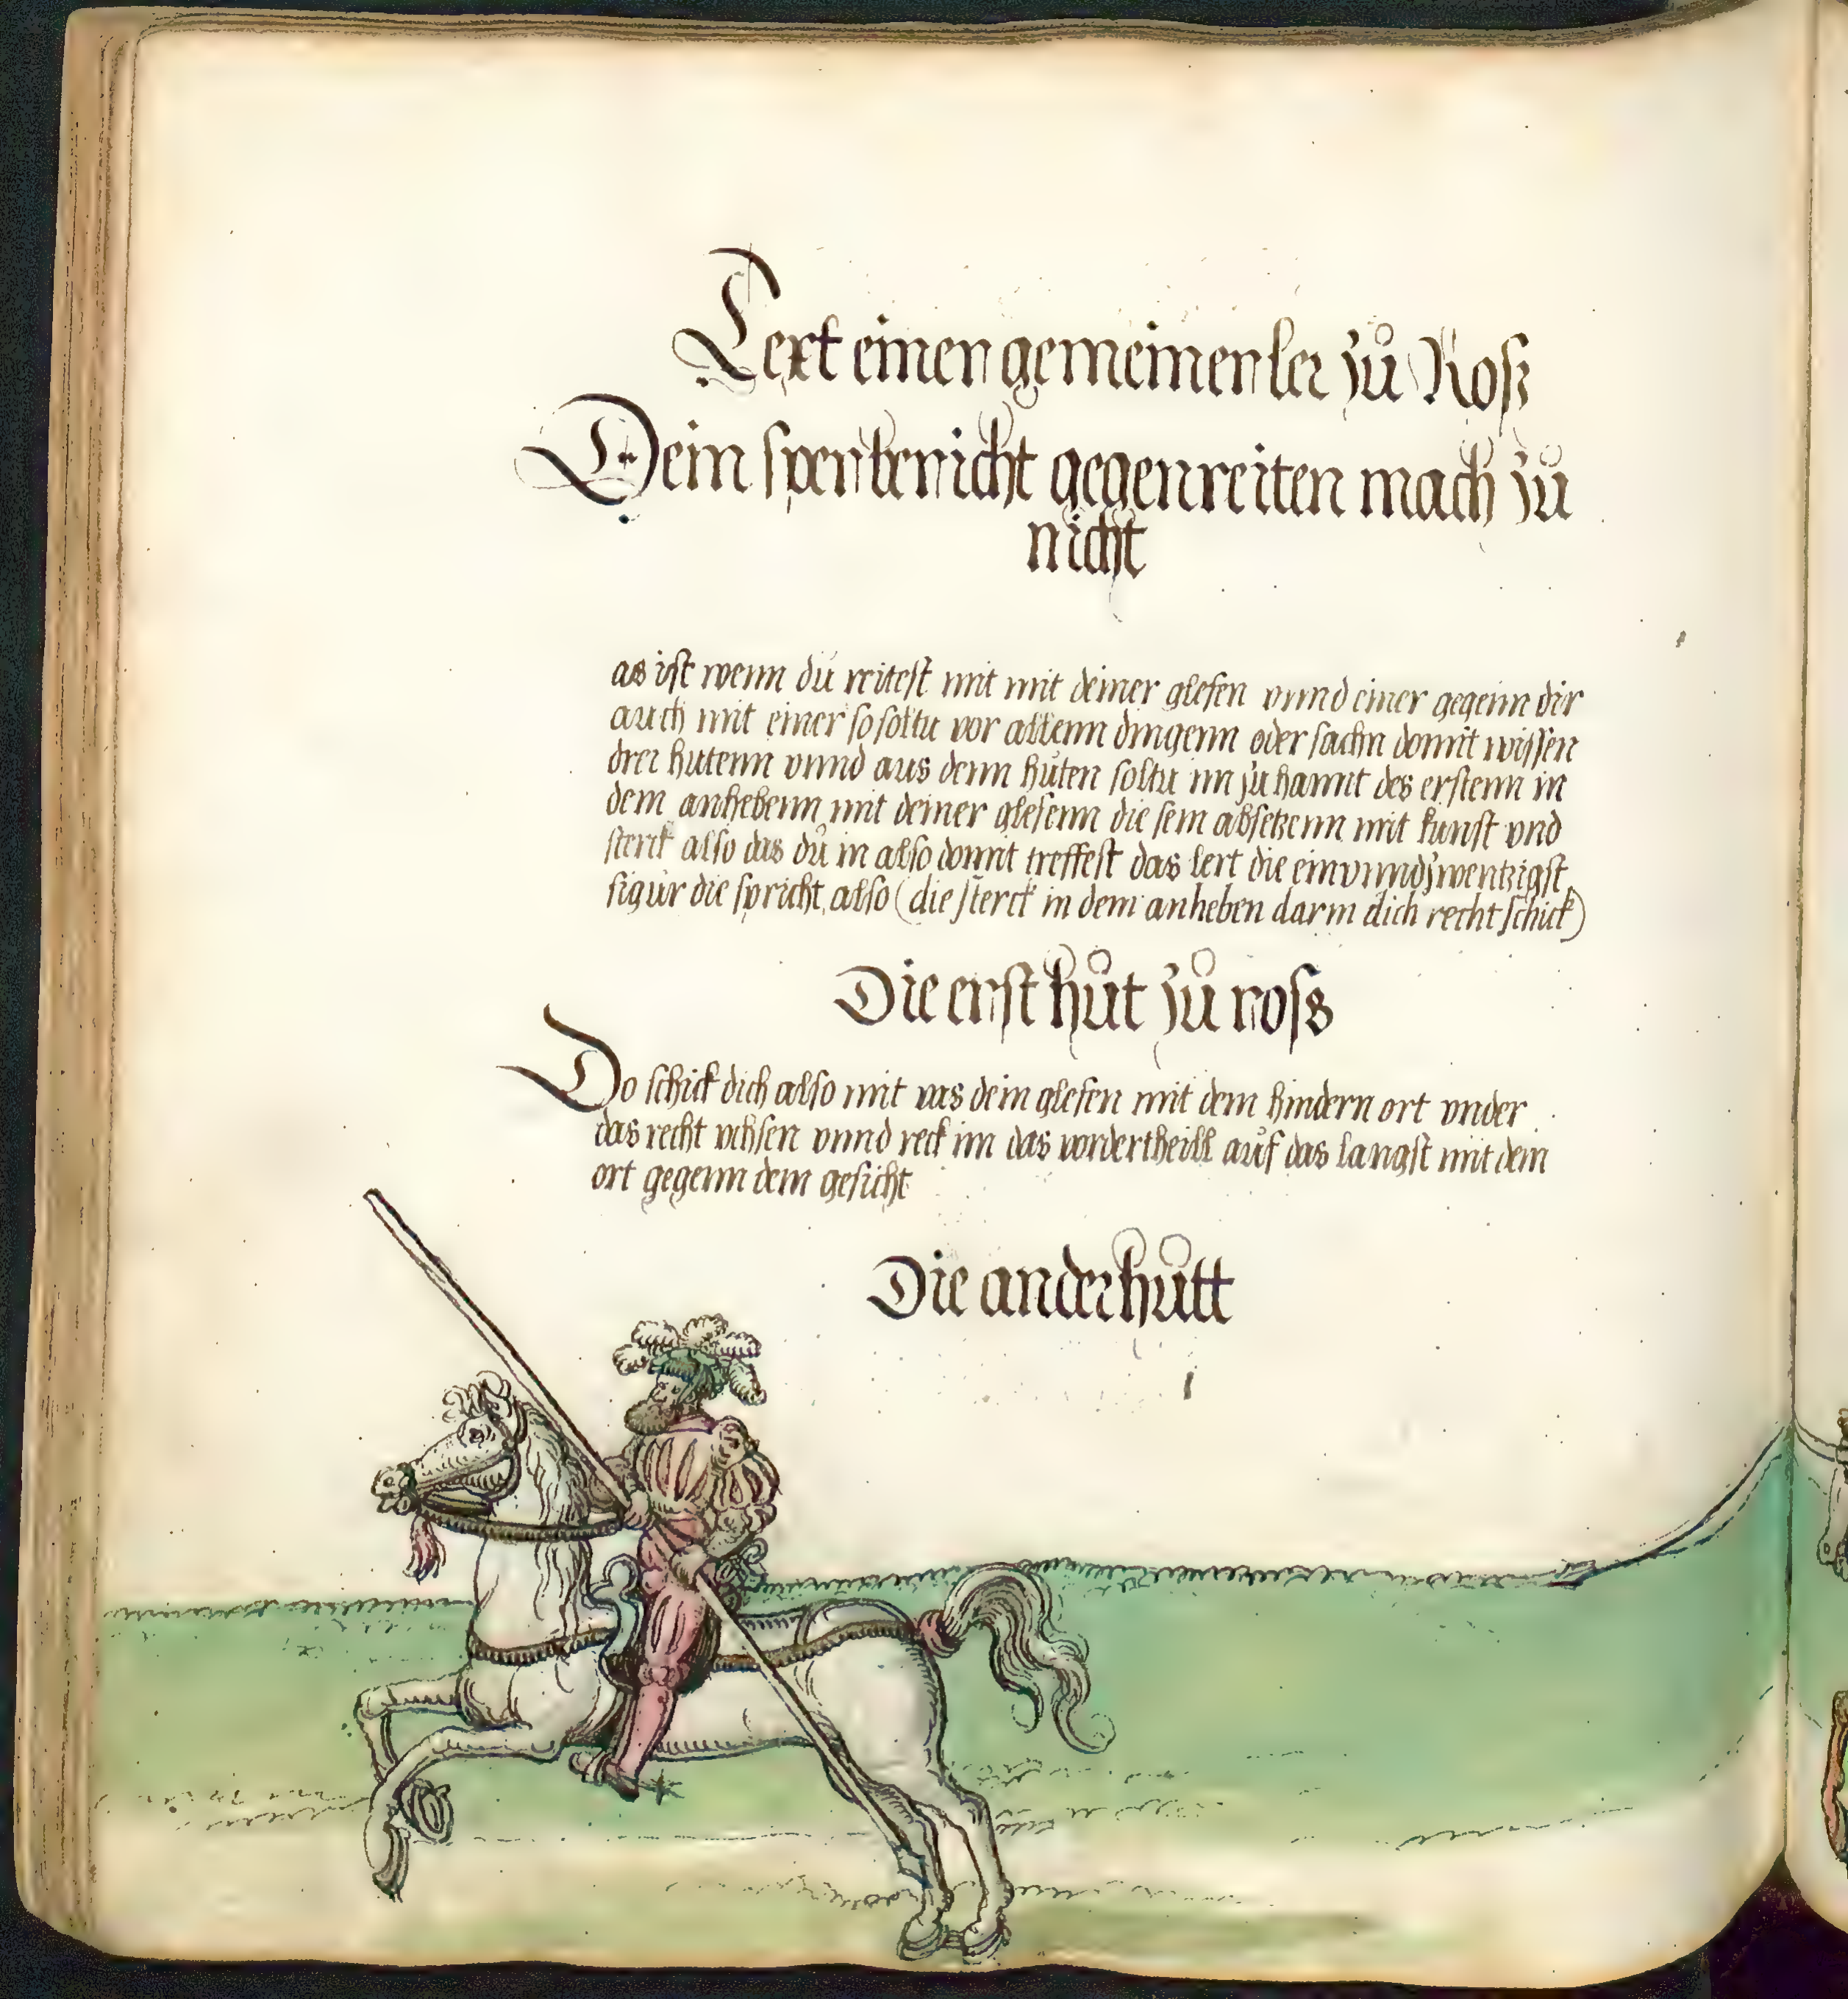 Text einen gemeinen ler zů Roß
Dein sper bericht gegenreiten mach zů
nicht
as ist wenn du reitest mit mit deiner glefen vnnd einer gegenn dir
auch mit einer so soltu vor allenn dingenn oder sachn domit wissen
drei hutenn vnnd aus denn huten soltu im zu hannt des erstenn in
dem anhebenn mit deiner glefenn die sein absetzenn mit kunst vnd
sterck also das dů in also domit treffest das lert die einvnndzwentzigst
figur die spricht also (die sterck in dem anheben darin dich recht schick)
Die erst hůt zů ross
Do schick dich also mit vas dein glefen mit dem hindern ort vnder
das recht vchsen vnnd reck im das vordertheill auf das langst mit dem
ort gegenn dem gesicht
Die ander hůtt